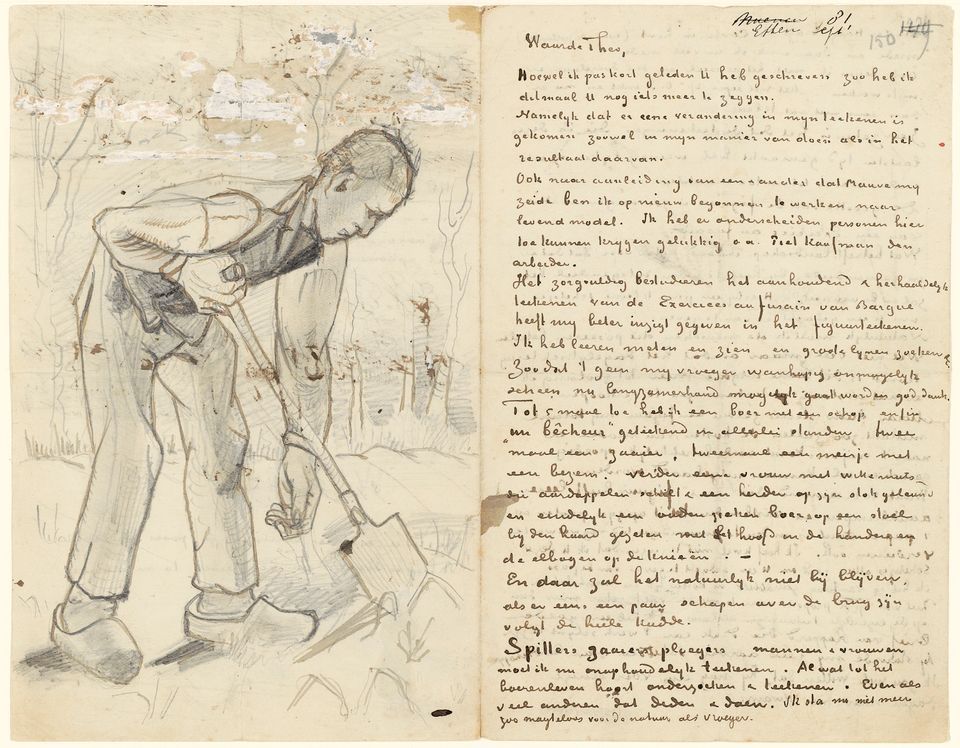 Nuenen 81
Etten Sept
150
Waarde Theo,
Hoewel ik pas kort geleden U heb geschreven zoo heb ik
ditmaal U nog iets meer te zeggen.
Namelyk dat er eene verandering in myn teekenen is
gekomen zoowel in myn manier van doen als in het
resultaat daarvan.
Ook naar aanleiding van een & ander dat Mauve my
zeide ben ik op nieuw begonnen te werken naar
levend model. Ik heb er onderscheiden personen hier
toe kunnen krygen gelukkig o.a. Piet Kaufman den
arbeider.
Het zorgvuldig bestuderen het aanhoudend & herhaaldelyk
teekenen van de Exercices au fusain van Bargue
heeft my beter inzigt gegeven in het figuurteekenen.
Ik heb leeren meten en zien en groote lynen zoeken &c
Zoo dat 't geen my vroeger wanhopig onmogelyk
scheen nu langzamerhand mogelyk gaat worden god dank.
Tot 5 maal toe heb ik een boer met een schop enfin
"un bêcheur" geteekend in allerlei standen, twee
maal een zaaier, tweemaal een meisje met
een bezem. Verder eene vrouw met witte muts
die aardappelen schilt & een herder op zyn stok geleund
en eindelyk een ouden zieken boer op een stoel
by den haard gezeten met het hoofd in de handen en
de elbogen op de knieën. –
En daar zal het natuurlyk niet by blyven,
als er eens een paar schapen over de brug zyn
volgt de heele kudde.
Spitters zaaiers ploegers mannen & vrouwen
moet ik nu onophoudelyk teekenen. Al wat tot het
boerenleven hoort onderzoeken & teekenen. Even als
veel anderen dat deden & doen. Ik sta nu niet meer
zoo magteloos voor de natuur als vroeger.